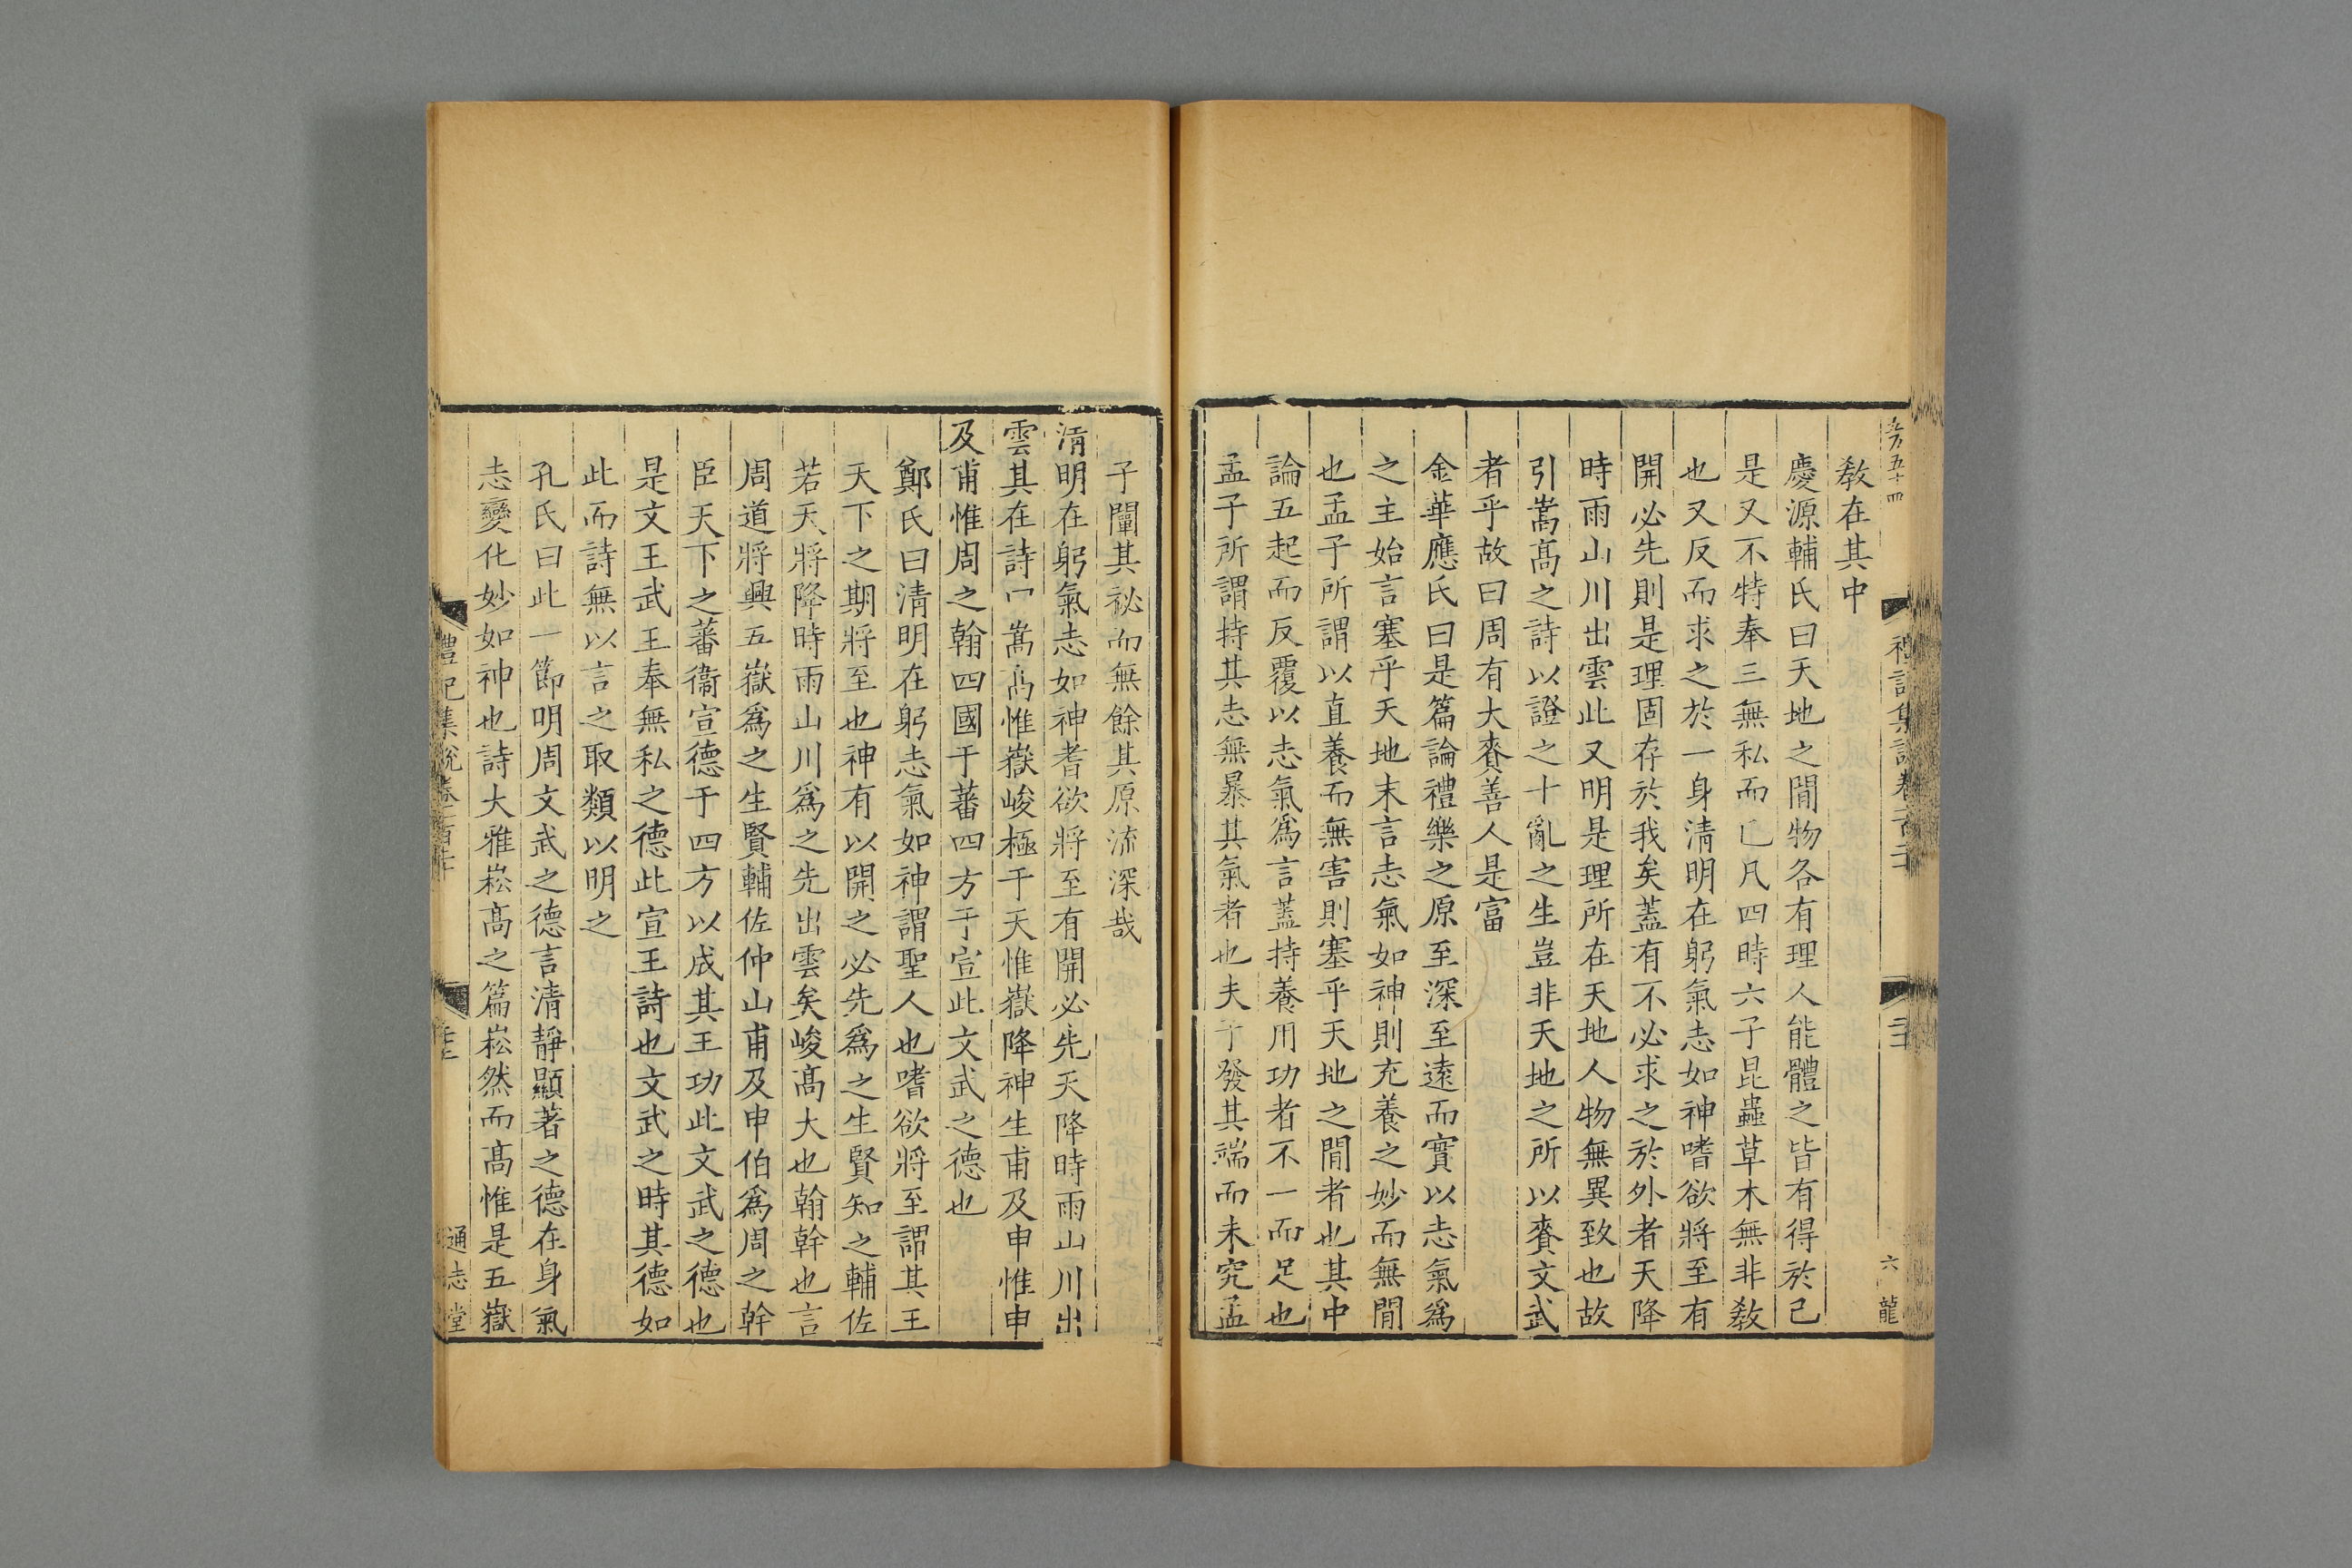 教在其中
慶源輔氏曰天地之閒物各有理人能體之皆有得於己
是又不特奉三無私而已凡四時六子昆蟲草木無非教
也又反而求之於一身清明在躬氣志如神嗜欲將至有
開必先則是理固存於我矣蓋有不必求之於外者天降
時雨山川出雲此又明是理所在天地人物無異致也故
引嵩高之詩以證之十亂之生豈非天地之所以賚文武
者乎故曰周有大賚善人是富
金華應氏曰是篇論禮樂之原至深至遠而實以志氣爲
之主始言塞乎天地末言志氣如神則充養之妙而無閒
也孟子所謂以直養而無害則塞乎天地之閒者也其中
論五起而反覆以志氣爲言蓋持養用功者不一而足也
孟子所謂持其志無暴其氣者也夫子發其端而未究孟
子闡其祕而無餘其原流深哉
清明在躬氣志如神耆欲將至有開必先天降時雨山川出
雲其在詩曰嵩高惟嶽峻極于天惟嶽降神生甫及申惟申
及甫惟周之翰四國于蕃四方于宣此文武之德也
鄭氏曰清明在躬志氣如神謂聖人也嗜欲將至謂其王
天下之期將至也神有以開之必先爲之生賢知之輔佐
若天將降時雨山川爲之先出雲矣峻高大也翰幹也言
周道將興五嶽爲之生賢輔佐仲山甫及申伯爲周之幹
臣天下之蕃衞宣德于四方以成其王功此文武之德也
是文王武王奉無私之德此宣王詩也文武之時其德如
此而詩無以言之取類以明之
孔氏曰此一節明周文武之德言清靜顯著之德在身氣
志變化妙如神也詩大雅崧高之篇崧然而高惟是五嶽
禮記集說卷一百
通志堂
六 龍